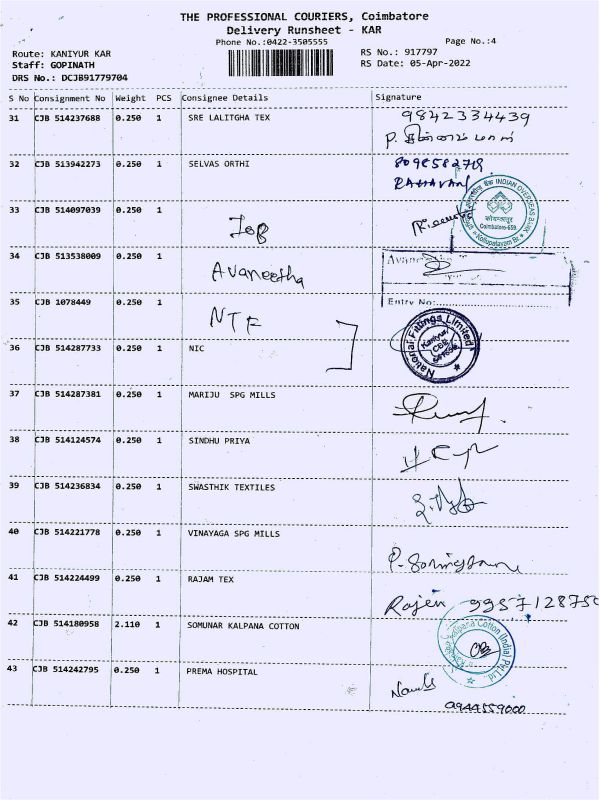 THE PROFESSIONAL COURIERS, Coimbatore
Delivery Runsheet - KAR
Phone No.:0422-3505555 Page No.:4
Route: KANIYUR KAR RS No.: 917797
Staff: GOPINATH RS Date: 05-Apr-2022
DRS No.: DCJB91779704
S No Consignment No Weight PCS Consignee Details Signature
31 CJB 514237688 0.250 1 SRE LALITGHA TEX 9842334439
32 CJB 513942273 0.250 1 SELVAS ORTHI
33 CJB 514097039 0.250 1 IOB
INDIAN OVERSEAS BANK
Coimbatore-659
34 CJB 513538009 0.250 1 Avaneetha
Entry No:
35 CJB 1078449 0.250 1 NTF
National Fittings Limited
Kaniyur
CBE
36 CJB 514287733 0.250 1 NIC
37 CJB 514287381 0.250 1 MARIJU SPG MILLS
38 CJB 514124574 0.250 1 SINDHU PRIYA
39 CJB 514236834 0.250 1 SWASTHIK TEXTILES
40 CJB 514221778 0.250 1 VINAYAGA SPG MILLS
41 CJB 514224499 0.250 1 RAJAM TEX Rajen
42 CJB 514180958 2.110 1 SOMUNAR KALPANA COTTON
Kalpana Cotton (India) Pvt Ltd.
43 CJB 514242795 0.250 1 PREMA HOSPITAL